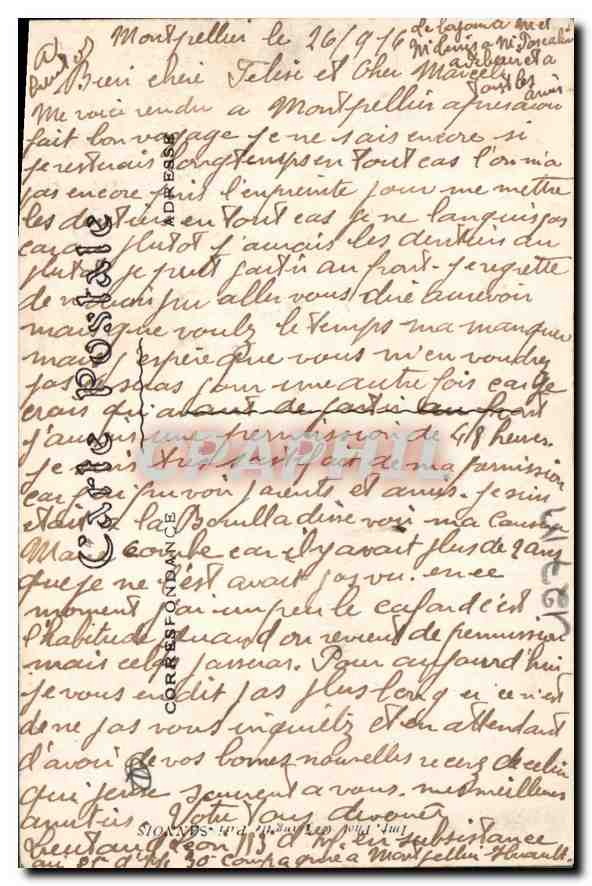 Montpellier le 26/9/16
Bien chère Felisé et Cher Marcel
Me voici rendu a Montpellier apres avoir
fait bon voyage je ne sais encore si
je resterais longtemps en tout cas l'on m'a
pas encore pris l'empreinte pour me mettre
les dentiers en tout cas je ne languis pas
car plutot j'aurais les dentiers au
plutot je puit partir au front. Je regrette
de n'avoir pu aller vous dire aurevoir
mais que voulez le temps ma manquer
mais j'espère que vous m'en voudrez
pas pour une autre fois car je
crois qu'avant de partir au front
j'aurais une permission de 48 heures
je suis très satisfait de ma permission
car j'ai pu voir parents et amis. Je suis
etait a la voir ma cousine
car il y avait plus de 2 ans
que je ne c'est avait pas vu. en ce
moment j'ai un peu le cafard c'est
l'habitude quand on revient de permission
mais cela passera. Pour aujourd'hui
je vous en dit pas plus long et ce n'est
de ne pas vous inquietz et en attendant
d'avoir de vos bonnes nouvelles recevz de celui
qui pense souvent a vous mes meilleures
amitiés Votre tous devoué
Lieutaud Leon 113 d' en subsistance
au d' 30 compagnie a Montpellier Herault
Carte Postale
CORRESPONDANCE
ADRESSE
CPAPHIL